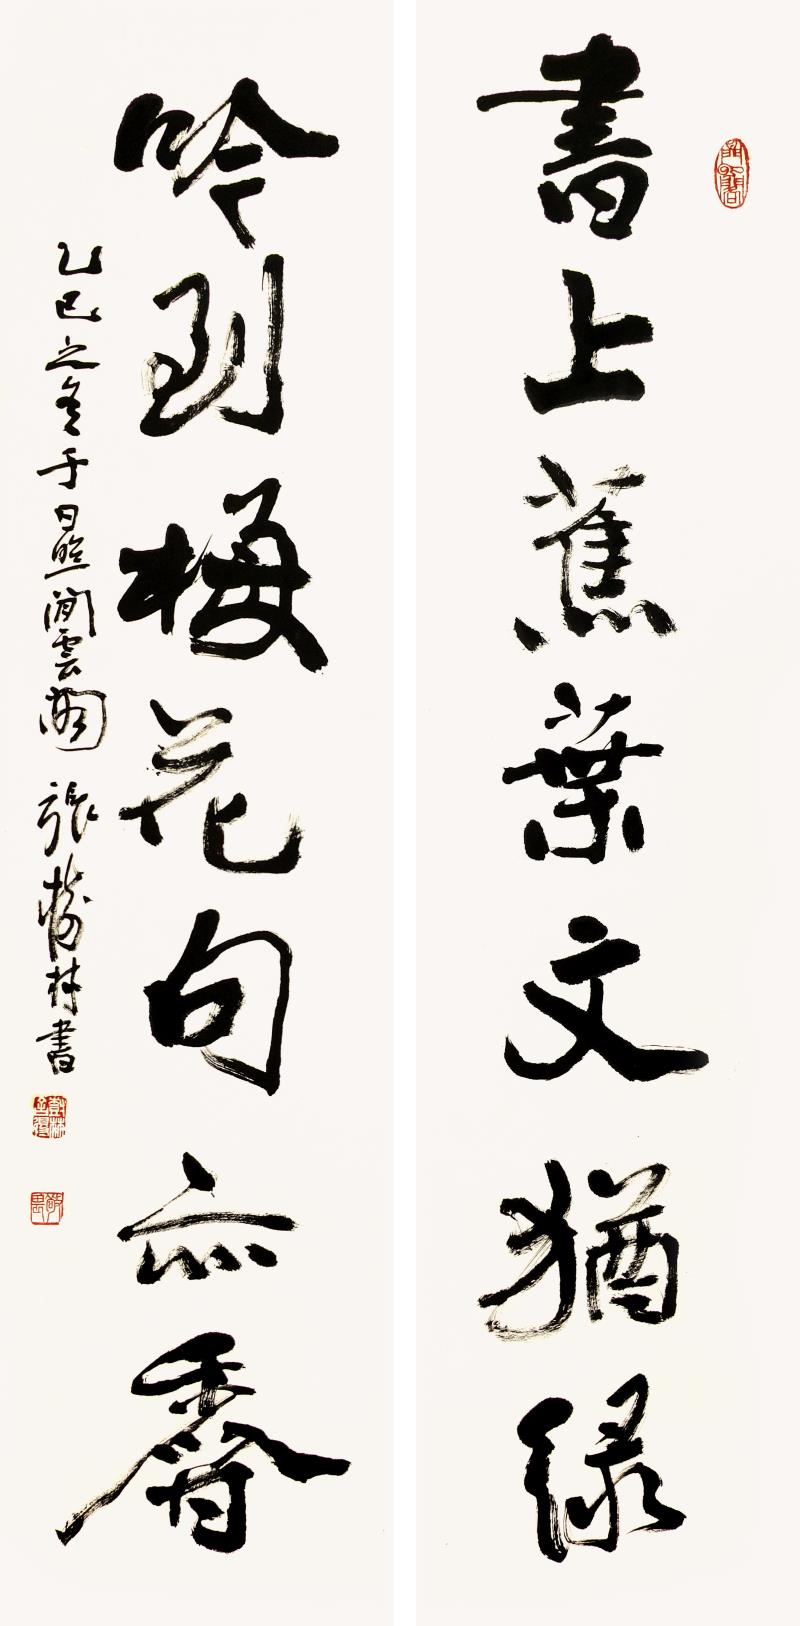 書上蕉葉文猶绿
吟到梅花句亦香
乙巳之冬于日照閒雲閣 張樹林書